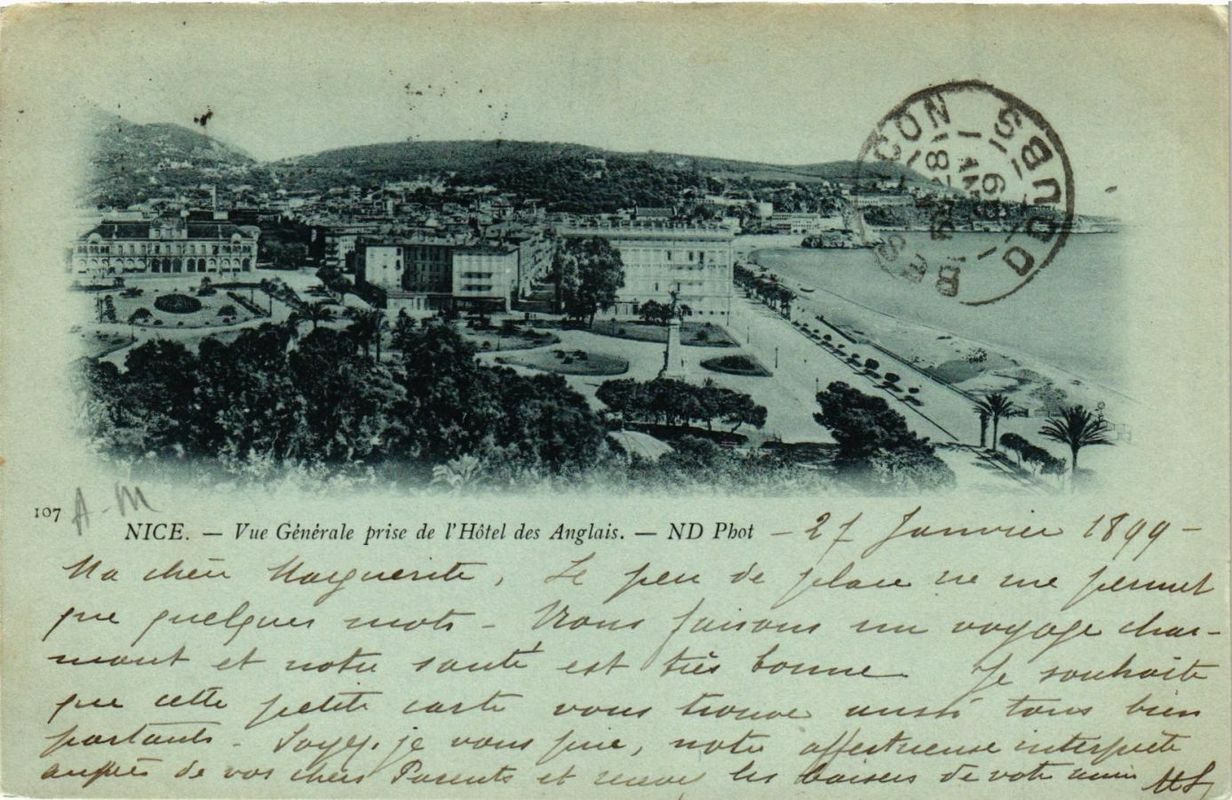 BESANCON
DOUBS
28
JANV
99
107
A-M
NICE. — Vue Générale prise de l'Hôtel des Anglais. — ND Phot
— 27 Janvier 1899 —
Ma chère Marguerite, Le peu de place ne me permet
que quelques mots — Nous faisons un voyage char-
mant et notre santé est très bonne. Je souhaite
que cette petite carte vous trouve aussi tous bien
portants — Soyez, je vous prie, notre affectueuse interprète
auprès de vos chers Parents et recevez les baisers de votre amie